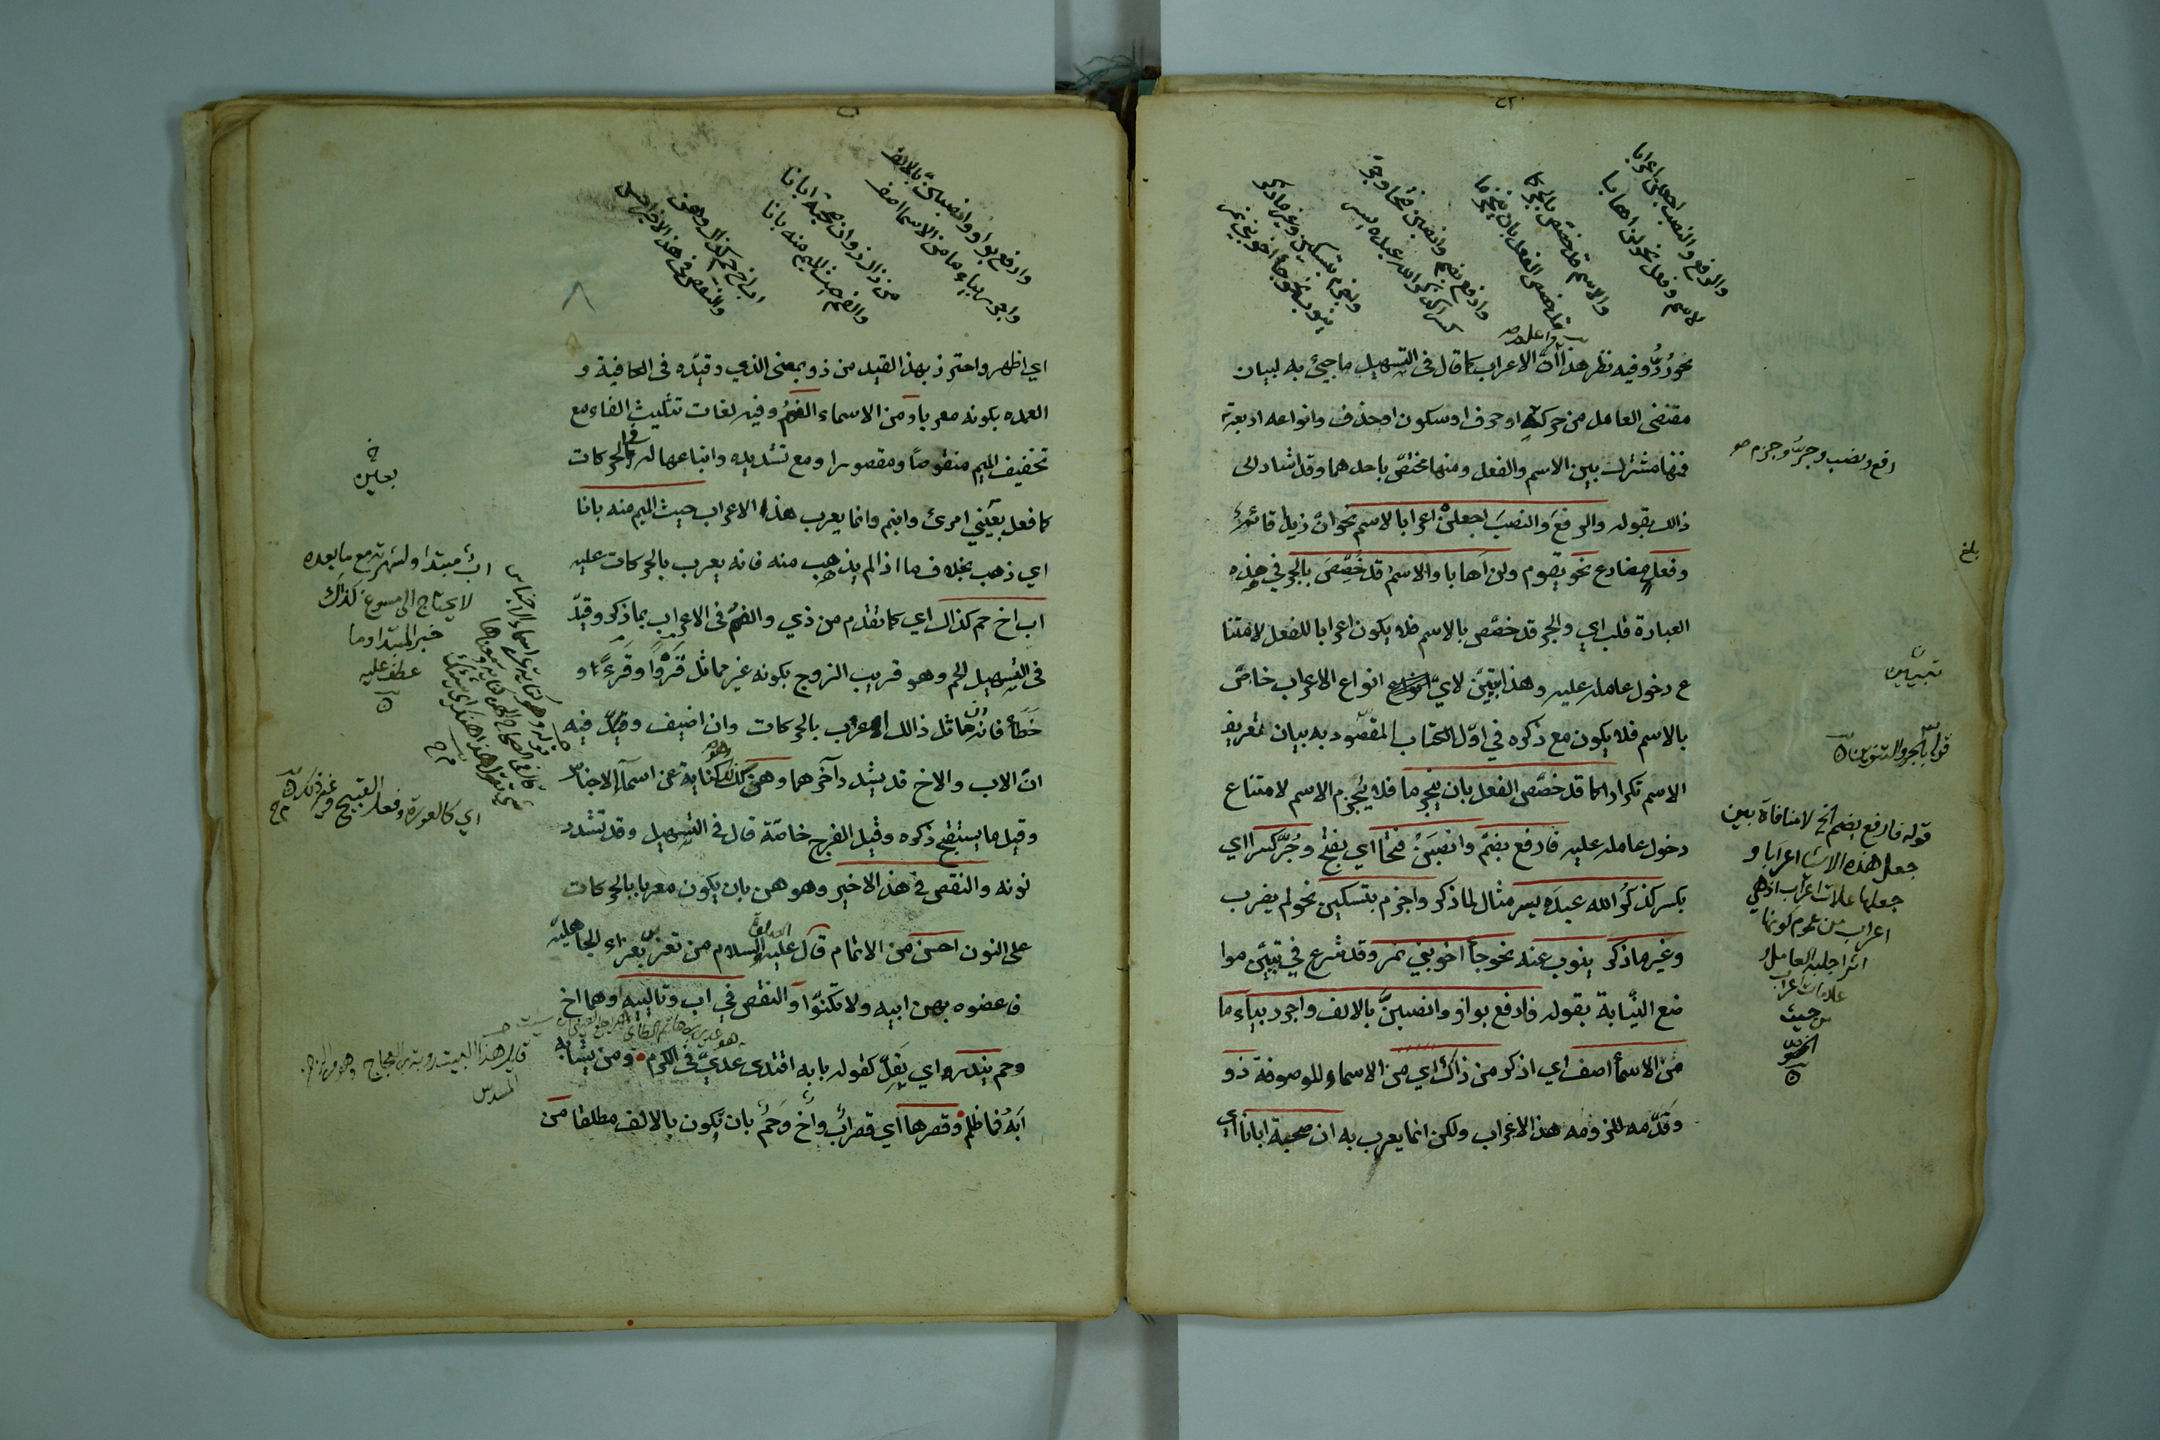 والرفع والنصب اجعلن اعرابا
لاسم وفعل نحو لن اهابا
والاسم قد خصص بالجر كما
قد خصص الفعل بان ينجزما
وارفع بضم وانصبن فتحا وجر
كسرا كذكر الله عبده يسر
واجزم بتسكين وغير ما ذكر
ينوب نحو جا اخو بني نمر
نحو رُدُّ وفيه نظر هذا واعلم انّ الاعراب كما قال فى التسهيل ما جيئ به لبيان
مقتضى العامل من حركة او حرف او سكون او حذف وانواعه اربعة
فمنها مشترك بين الاسم والفعل ومنها مختصّ باحدهما وقد اشار الى
ذالك بقوله والرفعَ والنصبَ اجعلنْ اعرابا لاسم نحو انّ زيدا قائم
وفعلٍ مضارع نحو يقوم ولن اهابا والاسمُ قد خُصِّصَ بالجر في هذه
العبارة قلب اي والجر قد خصّص بالاسم فلا يكون اعرابا للفعل لامتنا
ع دخول عامله عليه وهذا تبيّن لايّ انواع الاعراب خاصّ
بالاسم فلا يكون مع ذكره في اوّل الكتاب المقصود به بيان تعريف
الاسم تكرارا كما قد خصّص الفعل بان ينجزما فلا يُجزم الاسم لامتناع
دخول عامله عليه فارفع بضمّ وانصبَنْ فتحًا اي بفتح وجُرَّ كسرا اي
بكسر كذكرُ الله عبدَه يسر مثال لما ذكر واجزم بتسكين نحو لم يضرب
وغير ما ذكر ينوب عنه نحو جا اخو بني نمر وقد شرع في تبيّن موا
ضع النّيابة بقوله فارفع بواو وانصبنَّ بالالف واجرر بياء ما
من الاسما اصف اي اذكر من ذاك اي من الاسماء الموصوفة ذو
وقدّمه للزومه هذا الاعراب ولكن انما يعرب به ان صحبة ابانا اي
رفع ونصب وجرّ وجزم صح
بلغ
تبيين
قوله بالجر والتنوين
قوله فارفع بضم الخ لا منافاة بين
جعل هذه الاشيا اعرابا و
جعلها علامات اعراب اذ هي
اعراب من عموم كونها
اثرا جلبه العامل و
علامات اعراب
من حيث
الخصوص
وارفع بواو وانصبنّ بالالف
واجرر بياء ما من الاسما اصف
من ذاك ذو ان صحبة ابانا
والفم حيث الميم منه بانا
اب اخ حم كذاك وهن
والنقص فى هذا الاخير احسن
اي اظهر واحترز بهذا القيد من ذو بمعنى الذي وقيّده فى الكافية و
العمده بكونه معربا ومن الاسماء الفمُ وفيه لغات تثليث الفاء مع
تخفيف الميم منقوصاً ومقصورا ومع تشديده واتباعها له فى الحركات
كما فعل بعيني امرئ وابنم وانما يعرب هذا الاعراب حيث الميم منه بانا
اي ذهب بخلاف ما اذا لم يذهب منه فانه يعرب بالحركات عليه
اب اخ حم كذاك اي كما تقدم من ذي والفم فى الاعراب بما ذكر وقيّد
فى التسهيل الحم وهو قريب الزوج بكونه غير مماثل قَرْوًا وقَرءًا و
خَطَأ فانه ان ماثل ذالك اعرب بالحركات وان اضيف وقيل فيه
انّ الاب والاخ قد يشدد آخرهما وهن كذلك وهو كناية عن اسمآ الاجناس
وقيل ما يستقبح ذكره وقيل الفرج خاصّة قال فى التسهيل وقد تشدد
نونه والنقص فى هذا الاخير وهو هن بان يكون معربا بالحركات
على النون احسن من الاتمام قال عليه الصلوة والسلام من تعزى بعزاء الجاهليّه
فاعضوه بهن ابيه ولا تكنّوا والنقص في اب وتالييه وهما اخ
وحم يندر اي يَقِلّ كقوله بابه اقتدى عديّ فى الكرم ومن يشابه
اَبَهُ فما ظلم وقصرها اي قصر ابٍ واخٍ وحمٍ بان تكون بالالف مطلقا من
بعاين
اب مبتدا ولشهرته مع ما بعده
لا يحتاج الى مسوغ كذاك
خبر المبتدا وما
عطف عليه
اي كالعورة وفعل القبيح وغير ذلك
قايل هذا البيت روبة بن العجاج وهو من الرجز
المسدس